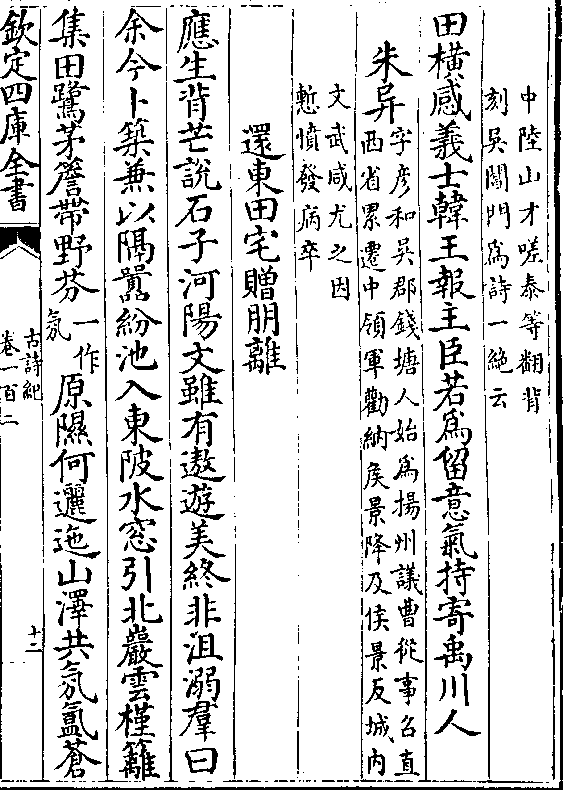 中陸山才嗟泰等翻背
刻吳閶門爲詩一絶云
田橫感義士韓王報主臣若爲留意氣持寄禹川人
朱异字彦和吳郡錢塘人始爲揚州議曹從事召直
西省累遷中領軍勸納侯景降及侯景反城内
文武咸尤之因
慙憤發病卒
還東田宅贈朋離
應生背芒說石子河陽文雖有遨遊美終非沮溺羣曰
余今卜築兼以隔囂紛池入東陂水窓引北巖雲槿籬
集田鷺茅簷帶野芬一作氛原隰何邐迤山澤共氛氳蒼
欽定四庫全書
古詩紀
卷一百二
十二